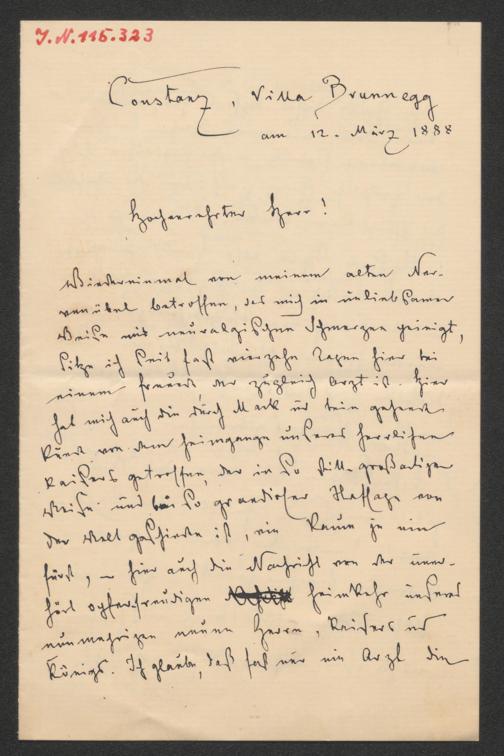 J.N. 115.323
Constanz, Villa Brunnegg
am 12. März 1888
Hochverehrter Herr!
Wiedereinmal von meinem alten Ner-
venübel betroffen, das mich in unliebsamer
Weise mit neuralgischen Schmerzen peinigt,
sitze ich seit fast vierzehn Tagen hier bei
einem Freund, der zugleich Arzt ist. Hier
hat mich auch die durch Mark u Bein gehende
Kunde von dem Heimgange unseres herrlichen
Kaisers getroffen, der in so still großartiger
Weise und bei so grandioser von
der Welt geschieden ist, wie kaum je ein
Fürst, – hier auch die Nachricht von der uner-
hört opferfreudigen Heimkehr unseres
nunmehrigen neuen Herrn, Kaisers und
Königs. Ich glaube, daß fast nur ein Arzt die